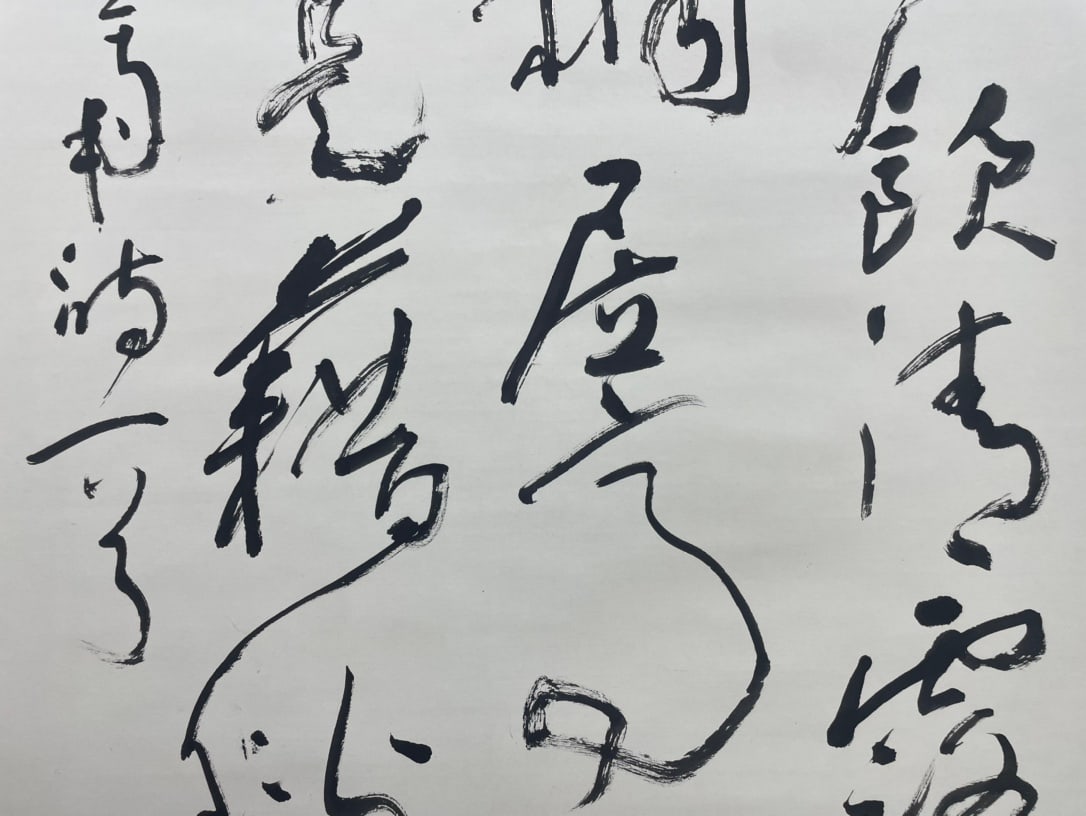 飲清露
桐居高
是藉秋
南詩一首